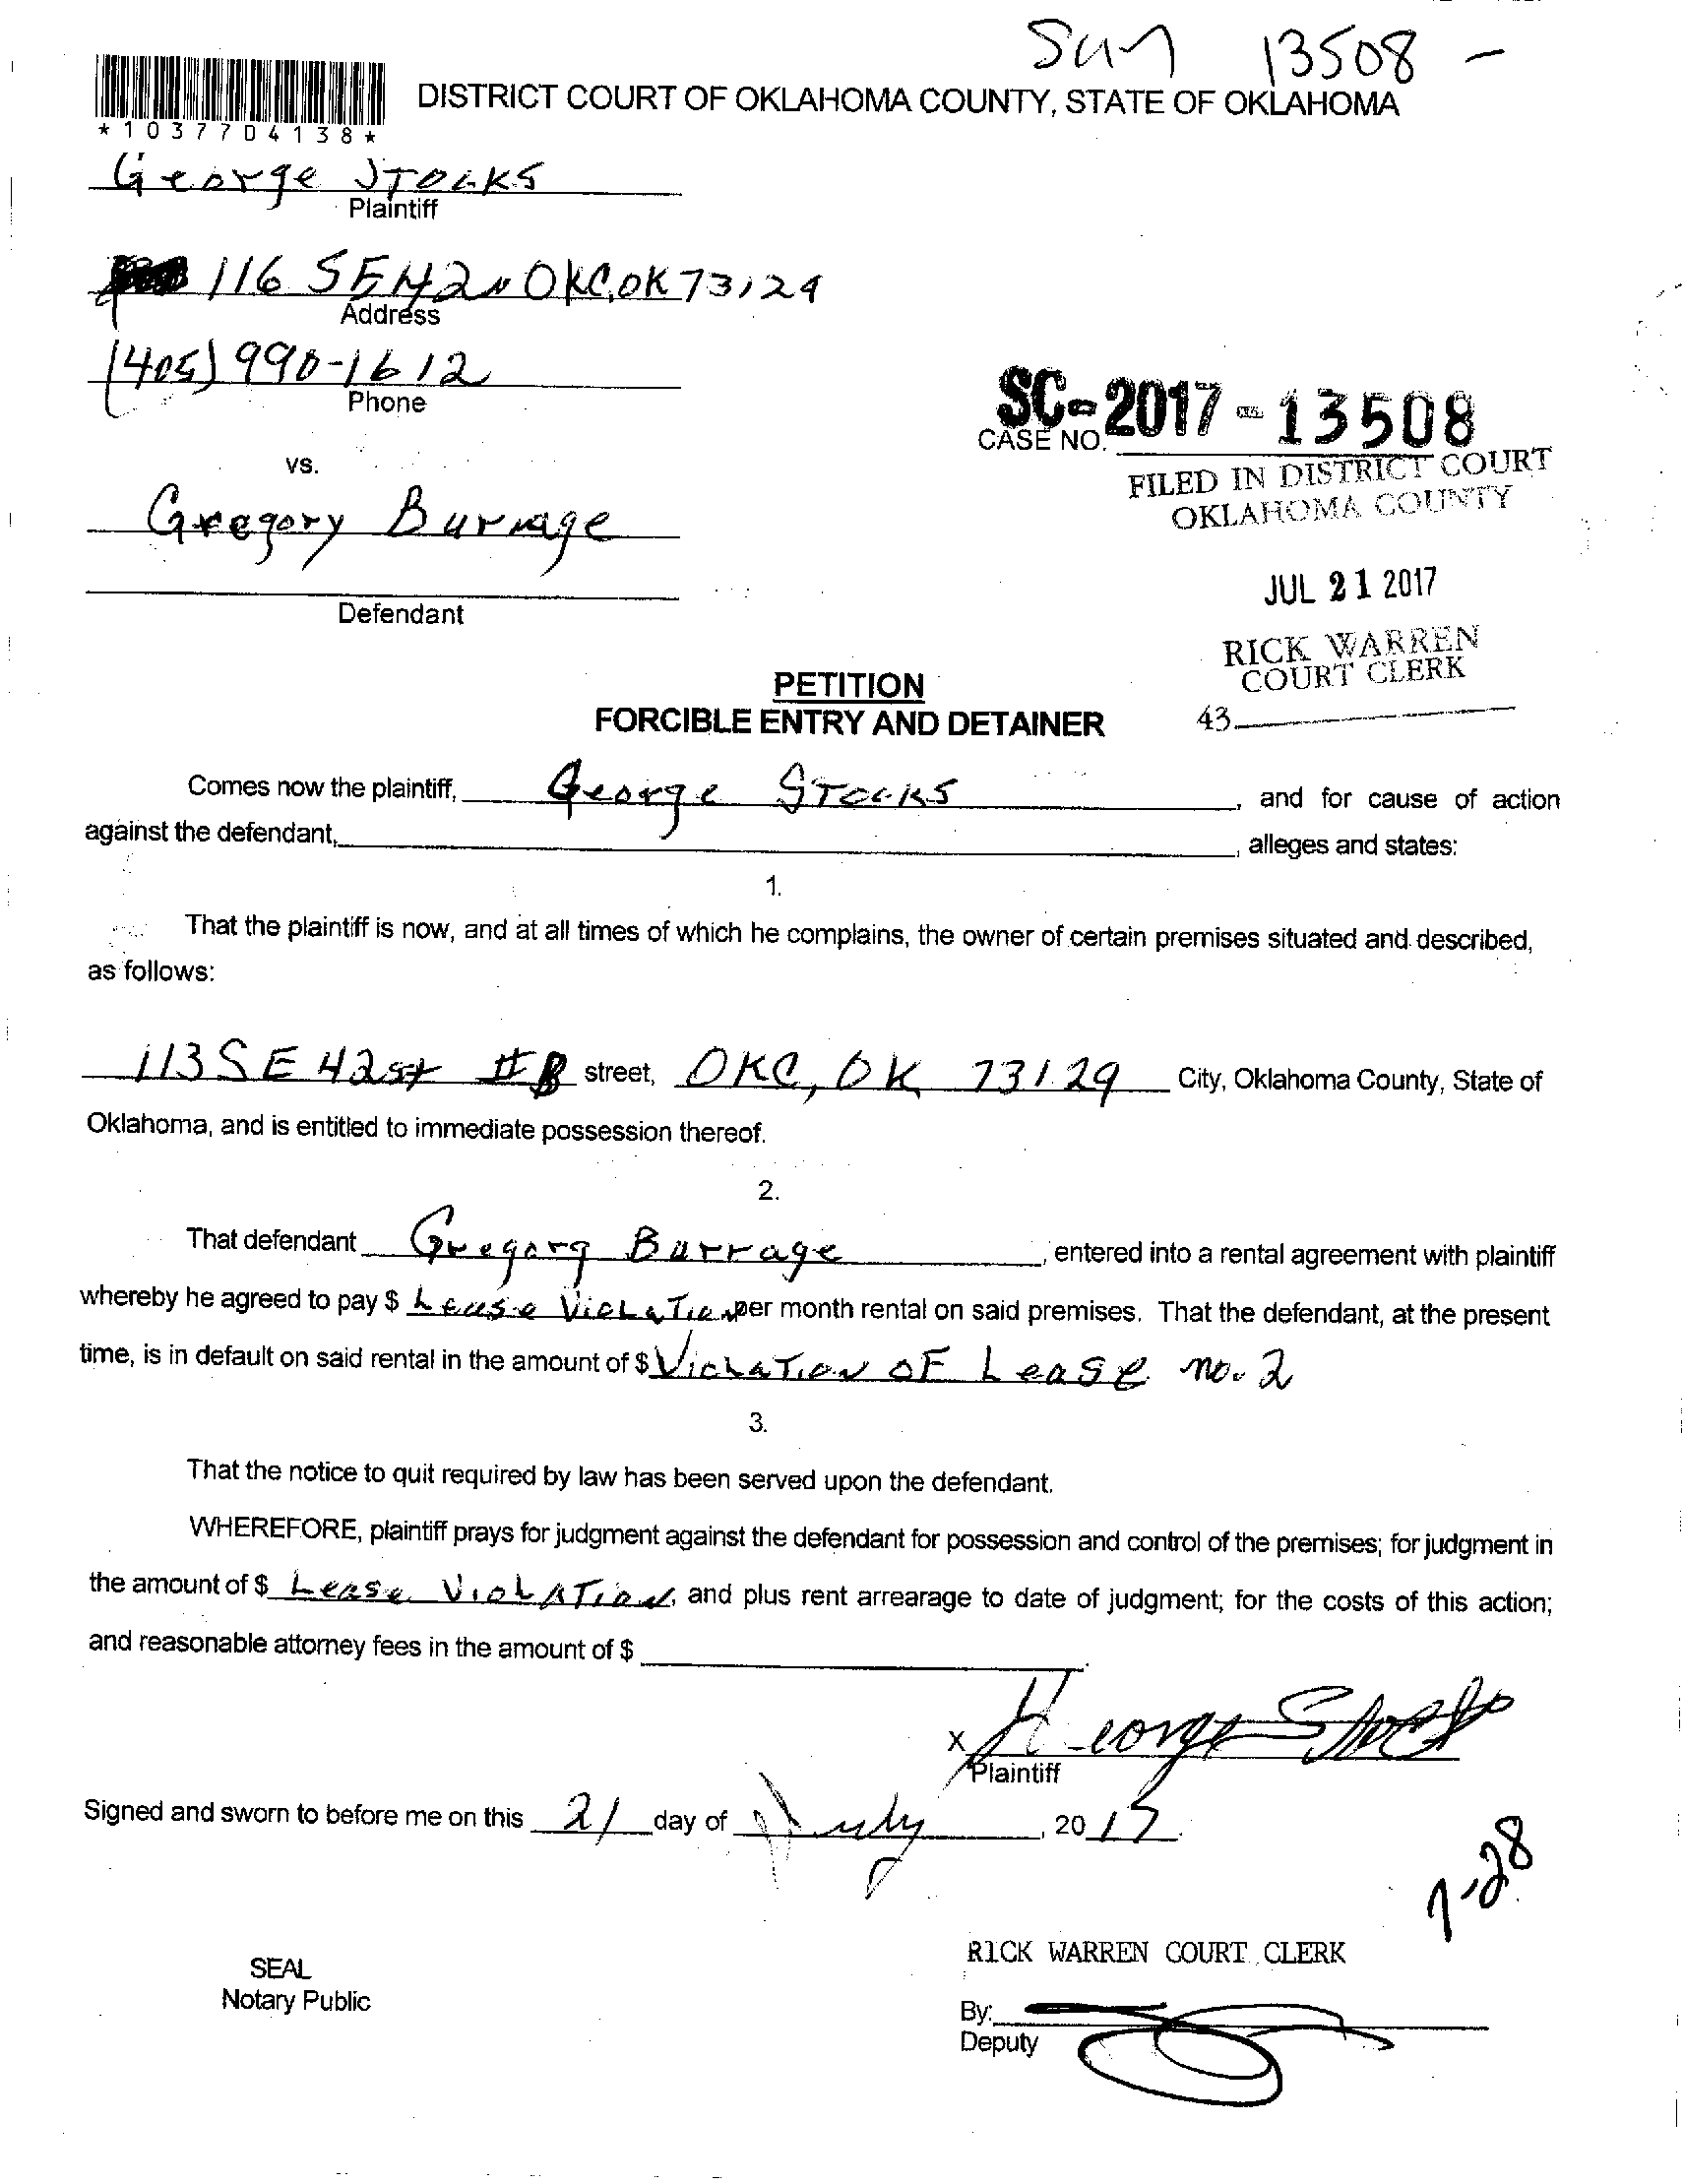 Sum 13508 -
*1037704138*
DISTRICT COURT OF OKLAHOMA COUNTY, STATE OF OKLAHOMA
George Stocks
Plaintiff
116 SE 42 OKC, OK 73129
Address
(405) 990-1612
Phone
SC-2017-13508
CASE NO.
vs.
FILED IN DISTRICT COURT
OKLAHOMA COUNTY
Gregory Burrage
JUL 21 2017
Defendant
RICK WARREN
COURT CLERK
43
PETITION
FORCIBLE ENTRY AND DETAINER
Comes now the plaintiff, George Stocks, and for cause of action
against the defendant, alleges and states:
1.
That the plaintiff is now, and at all times of which he complains, the owner of certain premises situated and described,
as follows:
113 SE 42st #B street, OKC, OK 73129 City, Oklahoma County, State of
Oklahoma, and is entitled to immediate possession thereof.
2.
That defendant Gregory Burrage, entered into a rental agreement with plaintiff
whereby he agreed to pay $ Lease Violation per month rental on said premises. That the defendant, at the present
time, is in default on said rental in the amount of $ Violation OF Lease no. 2
3.
That the notice to quit required by law has been served upon the defendant.
WHEREFORE, plaintiff prays for judgment against the defendant for possession and control of the premises; for judgment in
the amount of $ Lease Violation, and plus rent arrearage to date of judgment; for the costs of this action;
and reasonable attorney fees in the amount of $ .
x George Stocks
Plaintiff
Signed and sworn to before me on this 21 day of July, 2017.
7-28
RICK WARREN COURT CLERK
SEAL
Notary Public
By:
Deputy